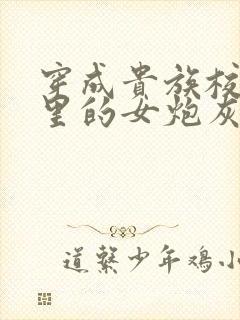 穿成貴族校
里的女炮灰
道繫少年鸡小